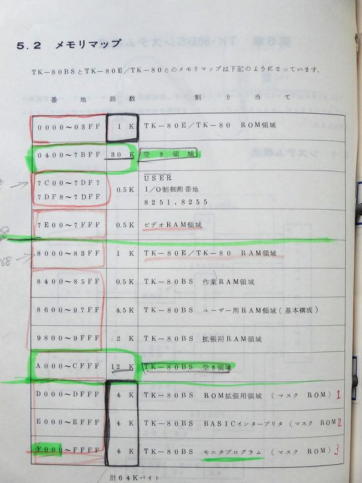 5.2 メモリマップ
TK-80BSとTK-80E/TK-80とのメモリマップは下記のようになっています。
番地 語数 割り当て
0000~03FF 1K TK-80E/TK-80 ROM領域
0400~7BFF 30K 空き領域
7C00~7DF7 0.5K USER
7DF8~7DFF I/O制御用番地
8251,8255
7E00~7FFF 0.5K ビデオRAM領域
8000~83FF 1K TK-80E/TK-80 RAM領域
8400~85FF 0.5K TK-80BS 作業RAM領域
8600~97FF 4.5K TK-80BS ユーザー用RAM領域(基本構成)
9800~9FFF 2K TK-80BS 拡張用RAM領域
A000~CFFF 12K TK-80BS 空き領域
D000~DFFF 4K TK-80BS ROM拡張用領域 (マスク ROM) 1
E000~EFFF 4K TK-80BS BASICインタープリタ (マスク ROM) 2
F000~FFFF 4K TK-80BS モニタプログラム (マスク ROM) 3
計64Kバイト